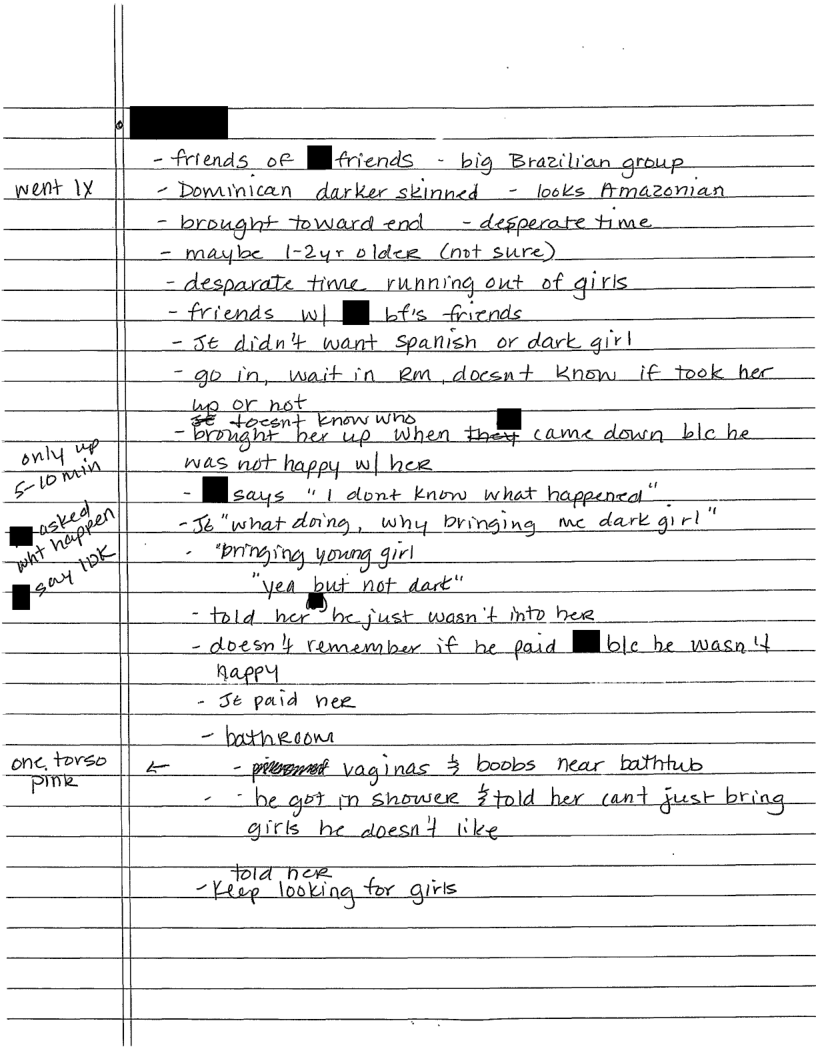 - friends of friends - big Brazilian group
went 1X
- Dominican darker skinned - looks Amazonian
- brought toward end - desperate time
- maybe 1-2yr older (not sure)
- desparate time running out of girls
- friends w/ bf's friends
- JE didn't want Spanish or dark girl
- go in, wait in RM, doesnt know if took her
up or not
JE doesnt know who
- brought her up when they came down b/c he
was not happy w/ her
only up
5-10 min
- says "I dont know what happened"
asked
wht happen
say IDK
- JE "what doing, why bringing me dark girl"
- "bringing young girl
"yea but not dark"
- told her he just wasn't into her
- doesn't remember if he paid b/c he wasn't
happy
- JE paid her
- bathroom
one torso
pink
← - vaginas & boobs near bathtub
- - he got in shower & told her cant just bring
girls he doesn't like
told her
- Keep looking for girls